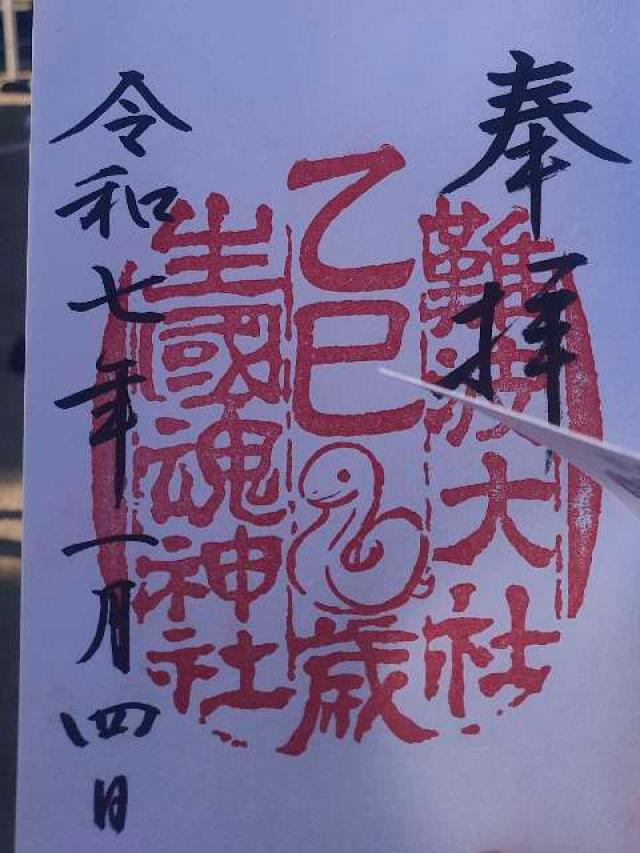 奉拝
難波大社
乙巳歳
生國魂神社
令和七年一月四日